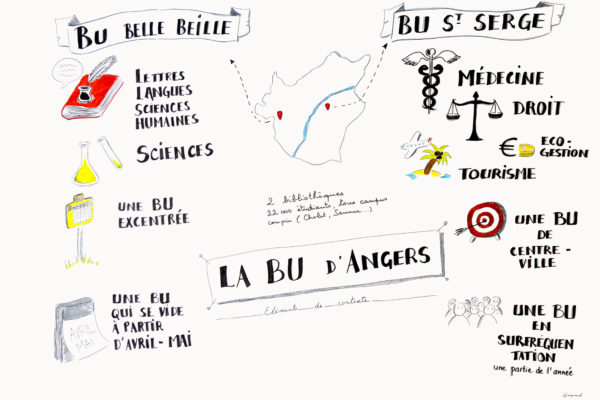 BU BELLE BEILLE
LETTRES
LANGUES
SCIENCES
HUMAINES
SCIENCES
UNE BU,
EXCENTRÉE
AVRIL
MAI
UNE BU
QUI SE VIDE
À PARTIR
D'AVRIL - MAI
2 bibliothèques
22 000 étudiants, tous campus
compris (Cholet, Saumur...)
LA BU D'ANGERS
Eléments de contexte
BU ST SERGE
MÉDECINE
DROIT
€
ECO-
GESTION
TOURISME
UNE BU
DE
CENTRE -
VILLE
UNE BU
EN
SURFRÉQUEN
TATION
une partie de l'année